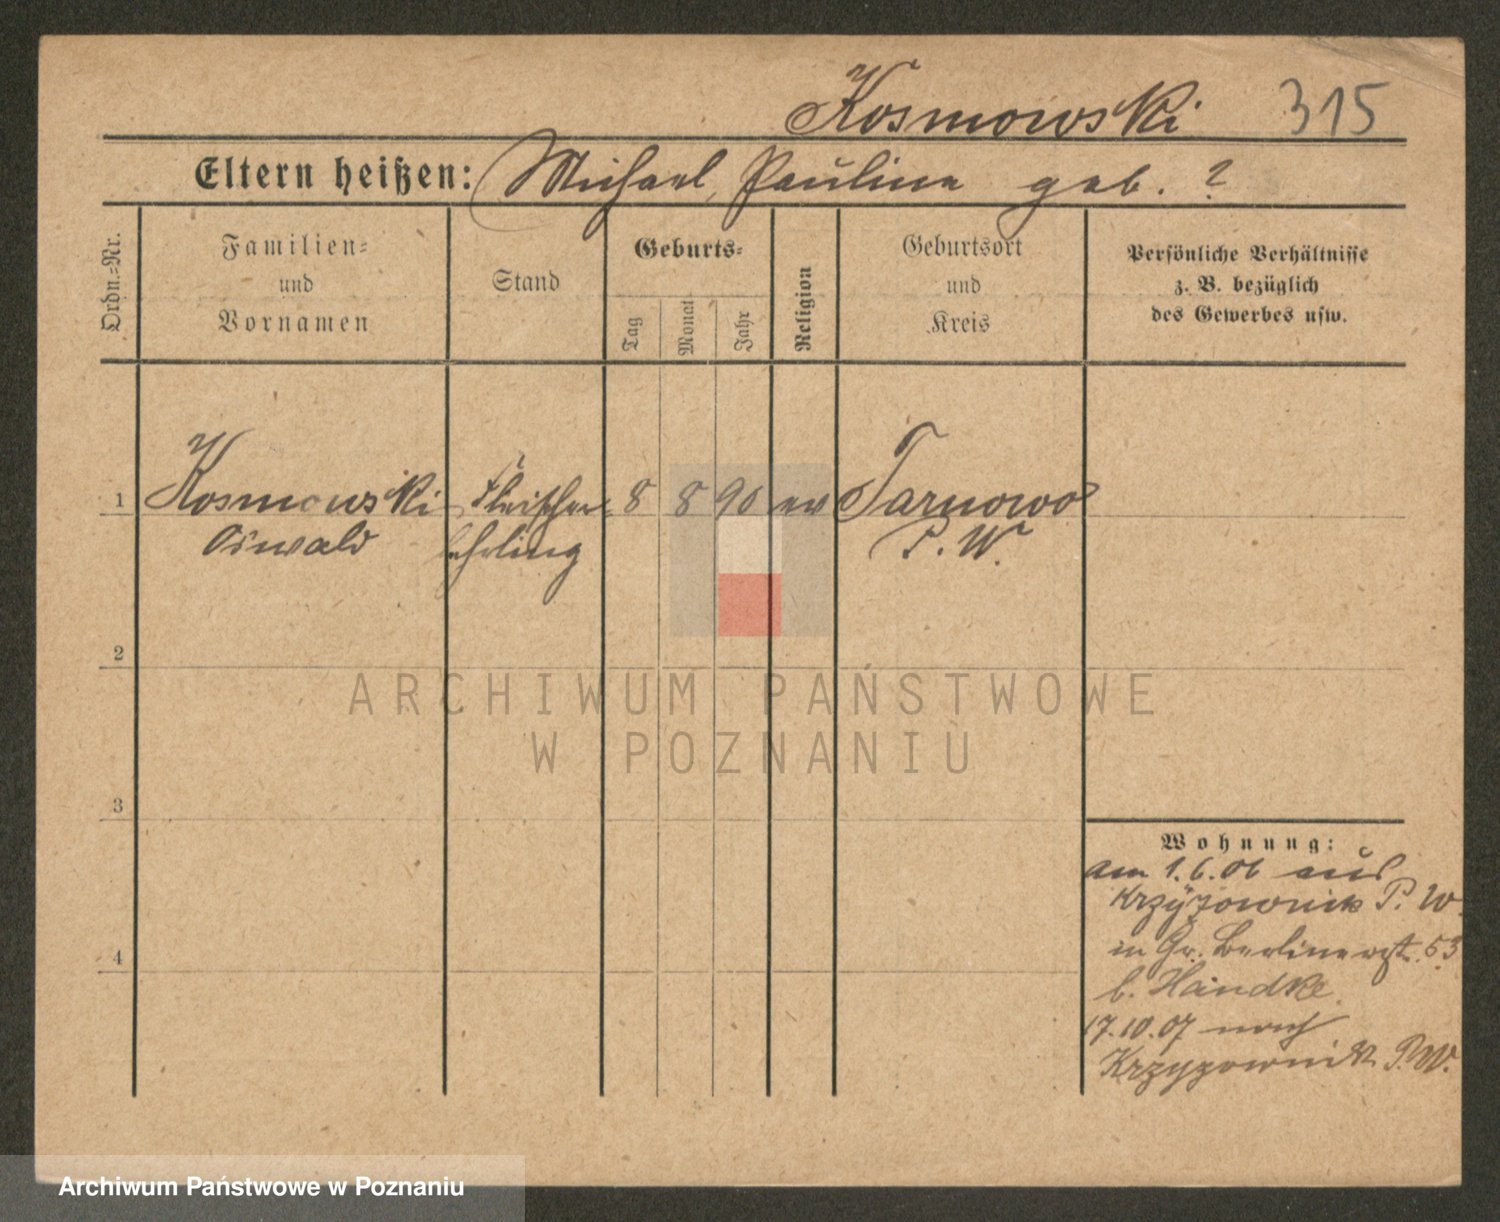 Kosmowski 315
Eltern heißen: Michael, Pauline geb. ?
Ordn.=Nr.
Familien=
und
Vornamen
Stand
Geburts=
Tag
Monat
Jahr
Religion
Geburtsort
und
Kreis
Persönliche Verhältnisse
z. B. bezüglich
des Gewerbes usw.
1 Kosmowski Fleischer 8 8 90 ev Tarnowo
Oswald lehrling P. W.
2
ARCHIWUM PAŃSTWOWE
W POZNANIU
3
Wohnung:
am 1.6.06 aus
Krzyżownik P. W.
in Gr. Berlinerst. 53
4
b. Handke.
17.10.07 nach
Krzyzownik P.W.
Archiwum Państwowe w Poznaniu